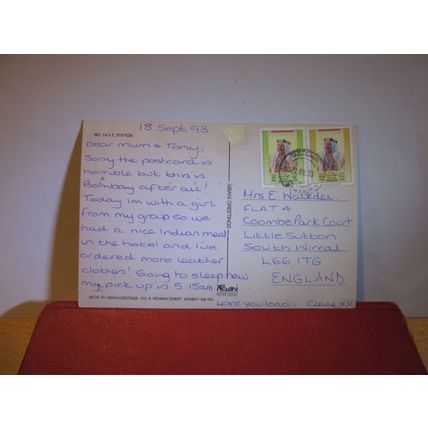 18 Sept 93
NO. 14 V.T. STATION
Dear Mum & Tony,
Sorry the postcard is
horrible but this is
Bombay after all!
Today I'm with a girl
from my group so we
had a nice Indian meal
in the hotel and I've
ordered more leather
clothes! Going to sleep now
my pick up is 5.15am
Love you loads Clare XX
ASIAN GREETINGS
Mrs E
FLAT 4
Coombe Park Court
Little Sutton
South Wirral
L66 1TG
ENGLAND